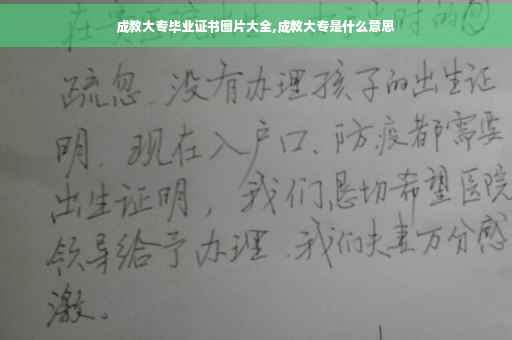 成教大专毕业证书图片大全,成教大专是什么意思
疏忽、没有办理孩子的出生证
明、现在入户口、防疫都需要
出生证明，我们恳切希望医院
领导给予办理、我们夫妻万分感
激。